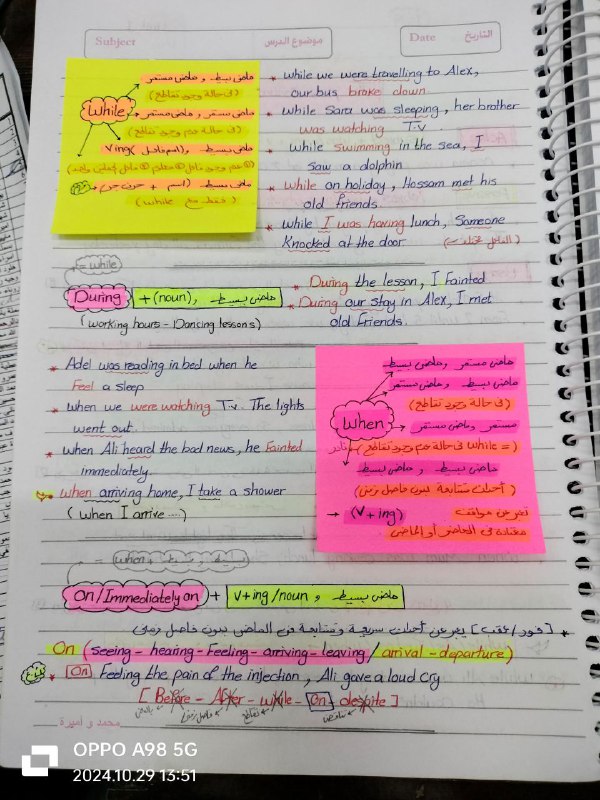 Subject
موضوع الدرس
Date
التاريخ
While
ماضى بسيط و ماضى مستمر
(فى حالة وجود تقاطع)
ماضى مستمر و ماضى مستمر
(فى حالة عدم وجود تقاطع)
Ving
ماضى بسيط (اسم + حرف جر)
(فقط مع while)
* while we were travelling to Alex,
our bus broke down
* while Sara was sleeping, her brother
was watching T.v
* while swimming in the sea, I
saw a dolphin
* while on holiday, Hossam met his
old friends.
* while I was having lunch, Someone
Knocked at the door
= while
During + (noun), ماضى بسيط
(working hours - Dancing lessons)
* During the lesson, I fainted
* During our stay in Alex, I met
old friends.
* Adel was reading in bed when he
Feel a sleep
* when we were watching T.v. The lights
went out.
* when Ali heard the bad news, he fainted
immediately.
when arriving home, I take a shower
(when I arrive ....)
When
ماضى مستمر و ماضى بسيط
ماضى بسيط و ماضى مستمر
(فى حالة وجود تقاطع)
ماضى مستمر و ماضى مستمر
(= while فى حالة عدم وجود تقاطع) نادر
ماضى بسيط و ماضى بسيط
(أحداث متتابعة بدون فاصل زمنى)
→ (v + ing)
On/Immediately on + v+ing/noun , ماضى بسيط
* [فور/عقب] يعبر عن أحداث سريعة ومتتابعة فى الماضى بدون فاصل زمنى
On (seeing - hearing - Feeling - arriving - leaving / arrival - departure)
* On Feeling the pain of the injection, Ali gave a loud cry
[Before - After - while - On - despite]
محمد و أميرة
OPPO A98 5G
2024.10.29 13:51